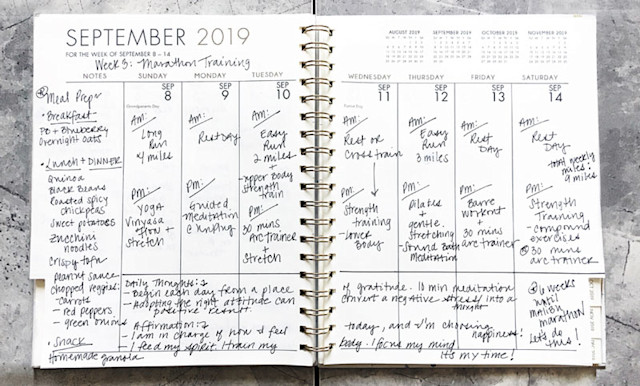 SEPTEMBER 2019
FOR THE WEEK OF SEPTEMBER 8 – 14
Week 5: Marathon Training
AUGUST 2019 SEPTEMBER 2019 OCTOBER 2019 NOVEMBER 2019
NOTES SUNDAY MONDAY TUESDAY
SEP 8 SEP 9 SEP 10
Grandparents Day
Meal Prep
• Breakfast
PB + Blueberry
Overnight oats
• Lunch + DINNER
Quinoa
Black Beans
Roasted spicy
chickpeas
Sweet potatoes
Zucchini
noodles
Crispy tofu
peanut sauce
chopped veggies:
- carrots
- red peppers
- green onions
• Snack
Homemade granola
AM:
Long
Run
4 miles
PM:
YOGA
Vinyasa
Flow +
Stretch
AM:
REST DAY
PM:
Guided
Meditation
@ Unplug
AM:
Easy
Run
2 miles
+
upper Body
Strength
train
PM:
30 mins
Arc Trainer
+
Stretch
WEDNESDAY THURSDAY FRIDAY SATURDAY
SEP 11 SEP 12 SEP 13 SEP 14
Patriot Day
AM:
Rest or
Cross train
PM:
Strength
training
- Lower
Body
AM:
Easy
Run
3 miles
PM:
Pilates
+
gentle
Stretching
- Sound Bath
Meditation
AM:
Rest
Day
PM:
Barre
workout
+
30 mins
arc trainer
AM:
Rest
Day
total weekly
miles:
9 miles
PM:
Strength
Training
- compound
exercises
30 mins
arc trainer
Daily Thoughts:
- Begin each day from a place of gratitude. 10 min meditation
- Adopting the right attitude can convert a negative stress into a
positive result.
Affirmation:
- I am in charge of how I feel today, and I'm choosing happiness!
- I feed my spirit. I train my body. I focus my mind
It's my time!
6 weeks
until
malibu
marathon
Let's do
this!